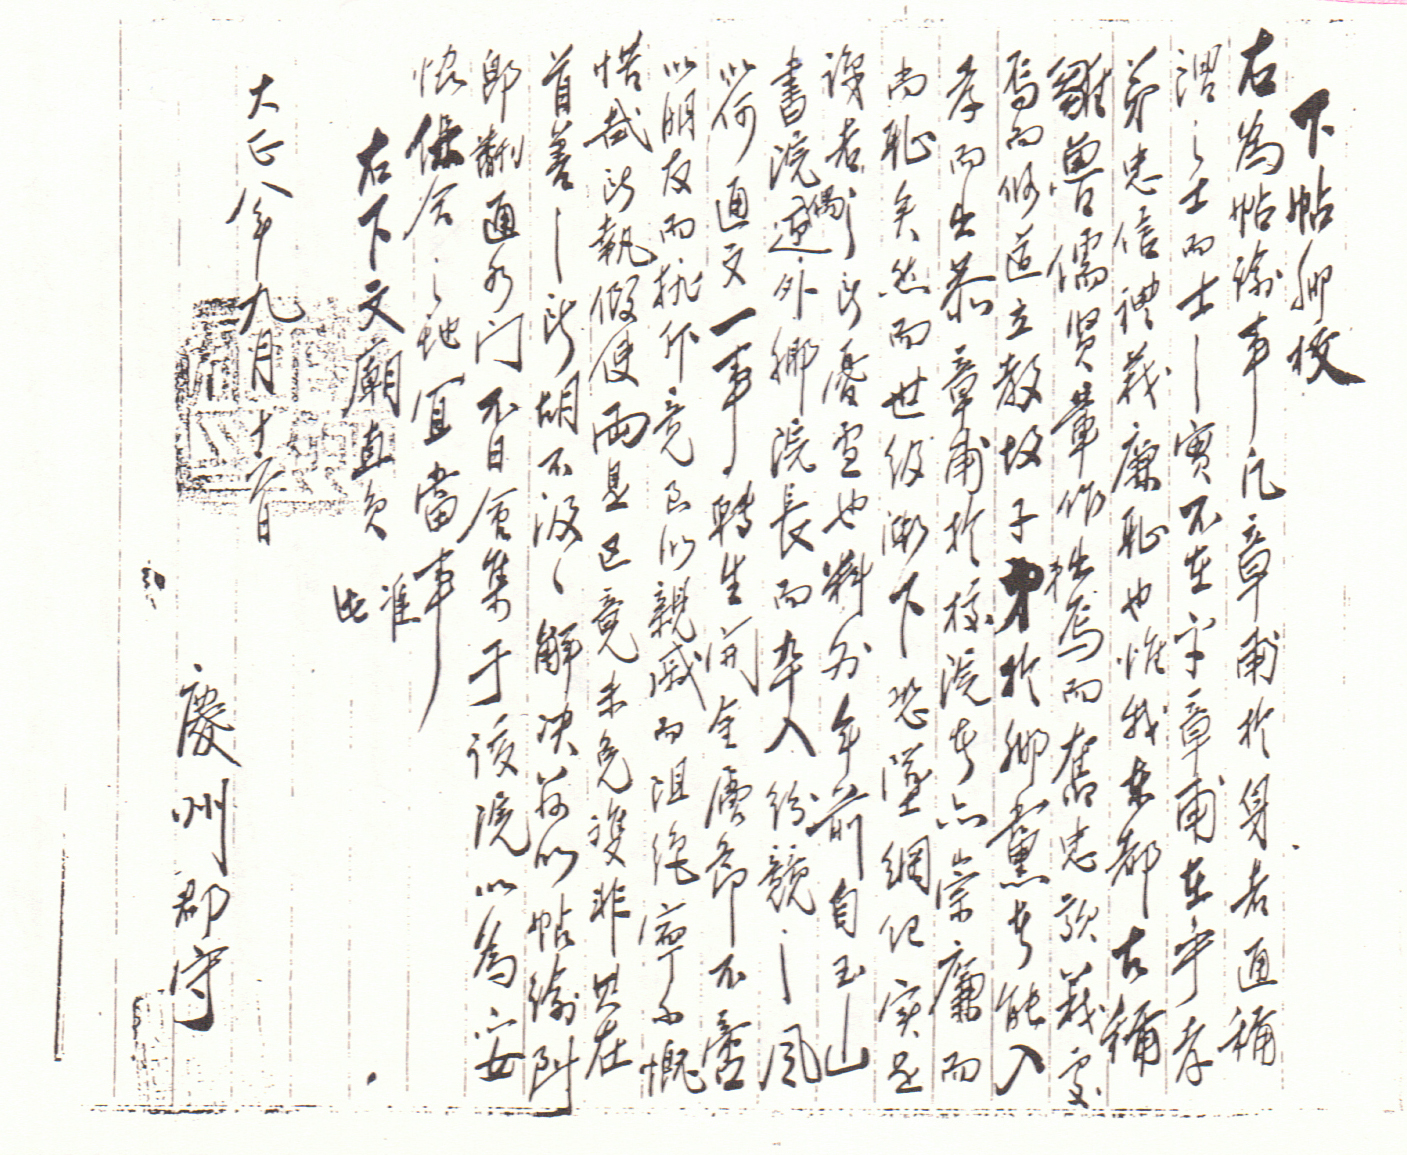 下帖鄕校
右為帖諭事凡章甫於身者通稱
謂之士而士之實不在乎章甫在乎孝
弟忠信禮義廉恥也惟我東都古稱
鄒魯儒賢輩作拙焉而舊忠歌義宅
焉而修道立教故子弟於鄕黨者能入
孝而出恭章甫於校院者亦崇廉而
尚恥矣然而世級漸下恐墜綱紀實是
識者之所憂也料外年前自玉山
書院遞外鄕院長而卒入紛競之風
以何通文一事轉生鬧全慶節不啻
以朋友而執亦竟已以親戚而阻絶寧不慨
惜哉此孰假使兩是己竟未免雙非其在
首善之此胡不汲汲解決茲以帖諭到
郎翻通各门不日會集于該院以為妥
恢保合之地宜當事
右下文廟直員
准此
大正八年九月十六日
慶州郡守